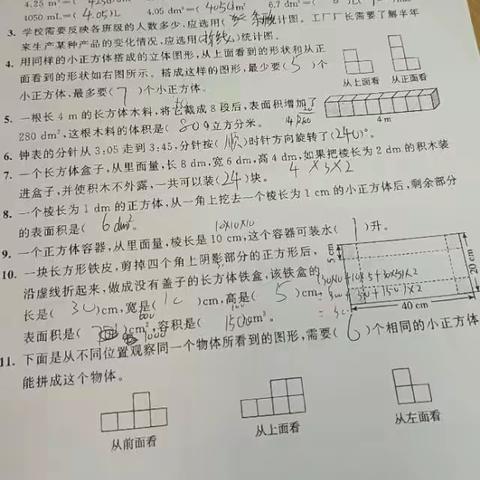 1050 mL=( 4.05 )L 4.05 dm³=( 4050
3. 学校需要反映各班级的人数多少,应选用( 条形 )统计图。工厂厂长需要了解半年
来生产某种产品的变化情况,应选用( 折线 )统计图。
4. 用同样的小正方体搭成的立体图形,从上面看到的形状和从正
面看到的形状如右图所示。搭成这样的图形,最少要( 5 )个
小正方体,最多要( 7 )个小正方体。
从上面看 从正面看
5. 一根长 4 m 的长方体木料,将它截成 8 段后,表面积增加了
280 dm²,这根木料的体积是( 80 )立方分米。
4 m
6. 钟表的分针从 3:05 走到 3:45,分针按( 顺 )时针方向旋转了( 240 )°。
7. 一个长方体盒子,从里面量,长 8 dm,宽 6 dm,高 4 dm,如果把棱长为 2 dm 的积木装
进盒子,并使积木不外露,一共可以装( 24 )块。 4×3×2
8. 一个棱长为 1 dm 的正方体,从一角上挖去一个棱长为 1 cm 的小正方体后,剩余部分
的表面积是( 6dm² )。
10×10×10
9. 一个正方体容器,从里面量,棱长是 10 cm,这个容器可装水( 1 )升。
10. 一块长方形铁皮,剪掉四个角上阴影部分的正方形后,
沿虚线折起来,做成没有盖子的长方体铁盒,该铁盒的
长是( 30 )cm,宽是( 10 )cm,高是( 5 )cm,
表面积是( )cm²,容积是( 1500cm³ )。
5 cm
20 cm
40 cm
11. 下面是从不同位置观察同一个物体所看到的图形,需要( 6 )个相同的小正方体
能拼成这个物体。
从前面看 从上面看 从左面看